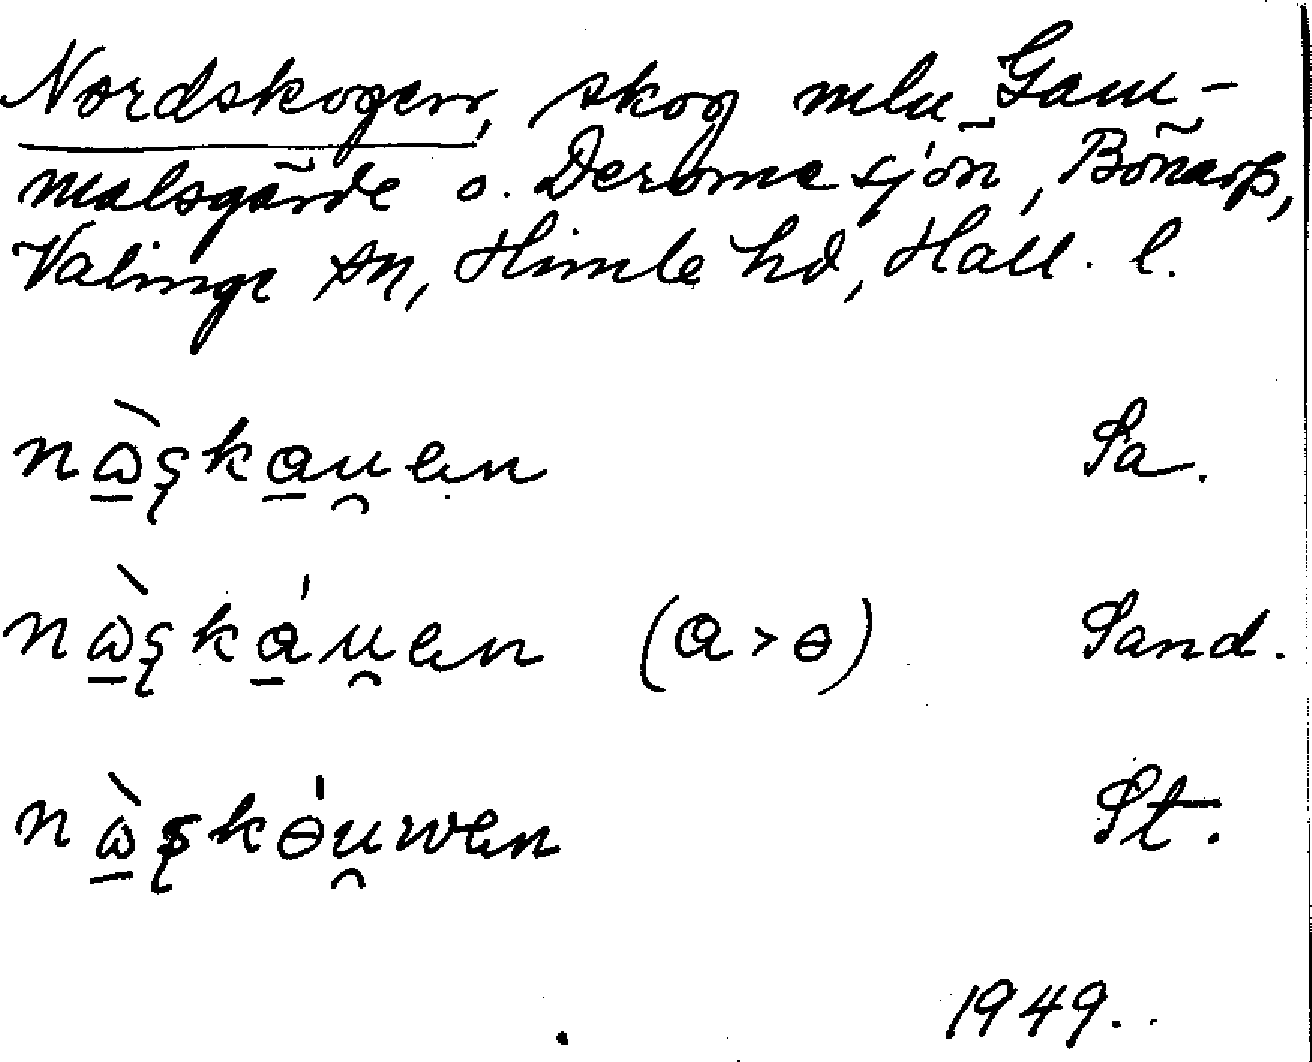 Nordskogen, skog mln Gam-
malsgärde o. Derome sjön, Bönarp,
Valinge sn, Himle hd, Hall. l.
nὼ̱ʂka̱u̯ən Sa.
nὼ̱ʂká̱u̯ən (a > ɵ) Sand.
nὼ̱ʂkɵ́u̯wən St.
1949.